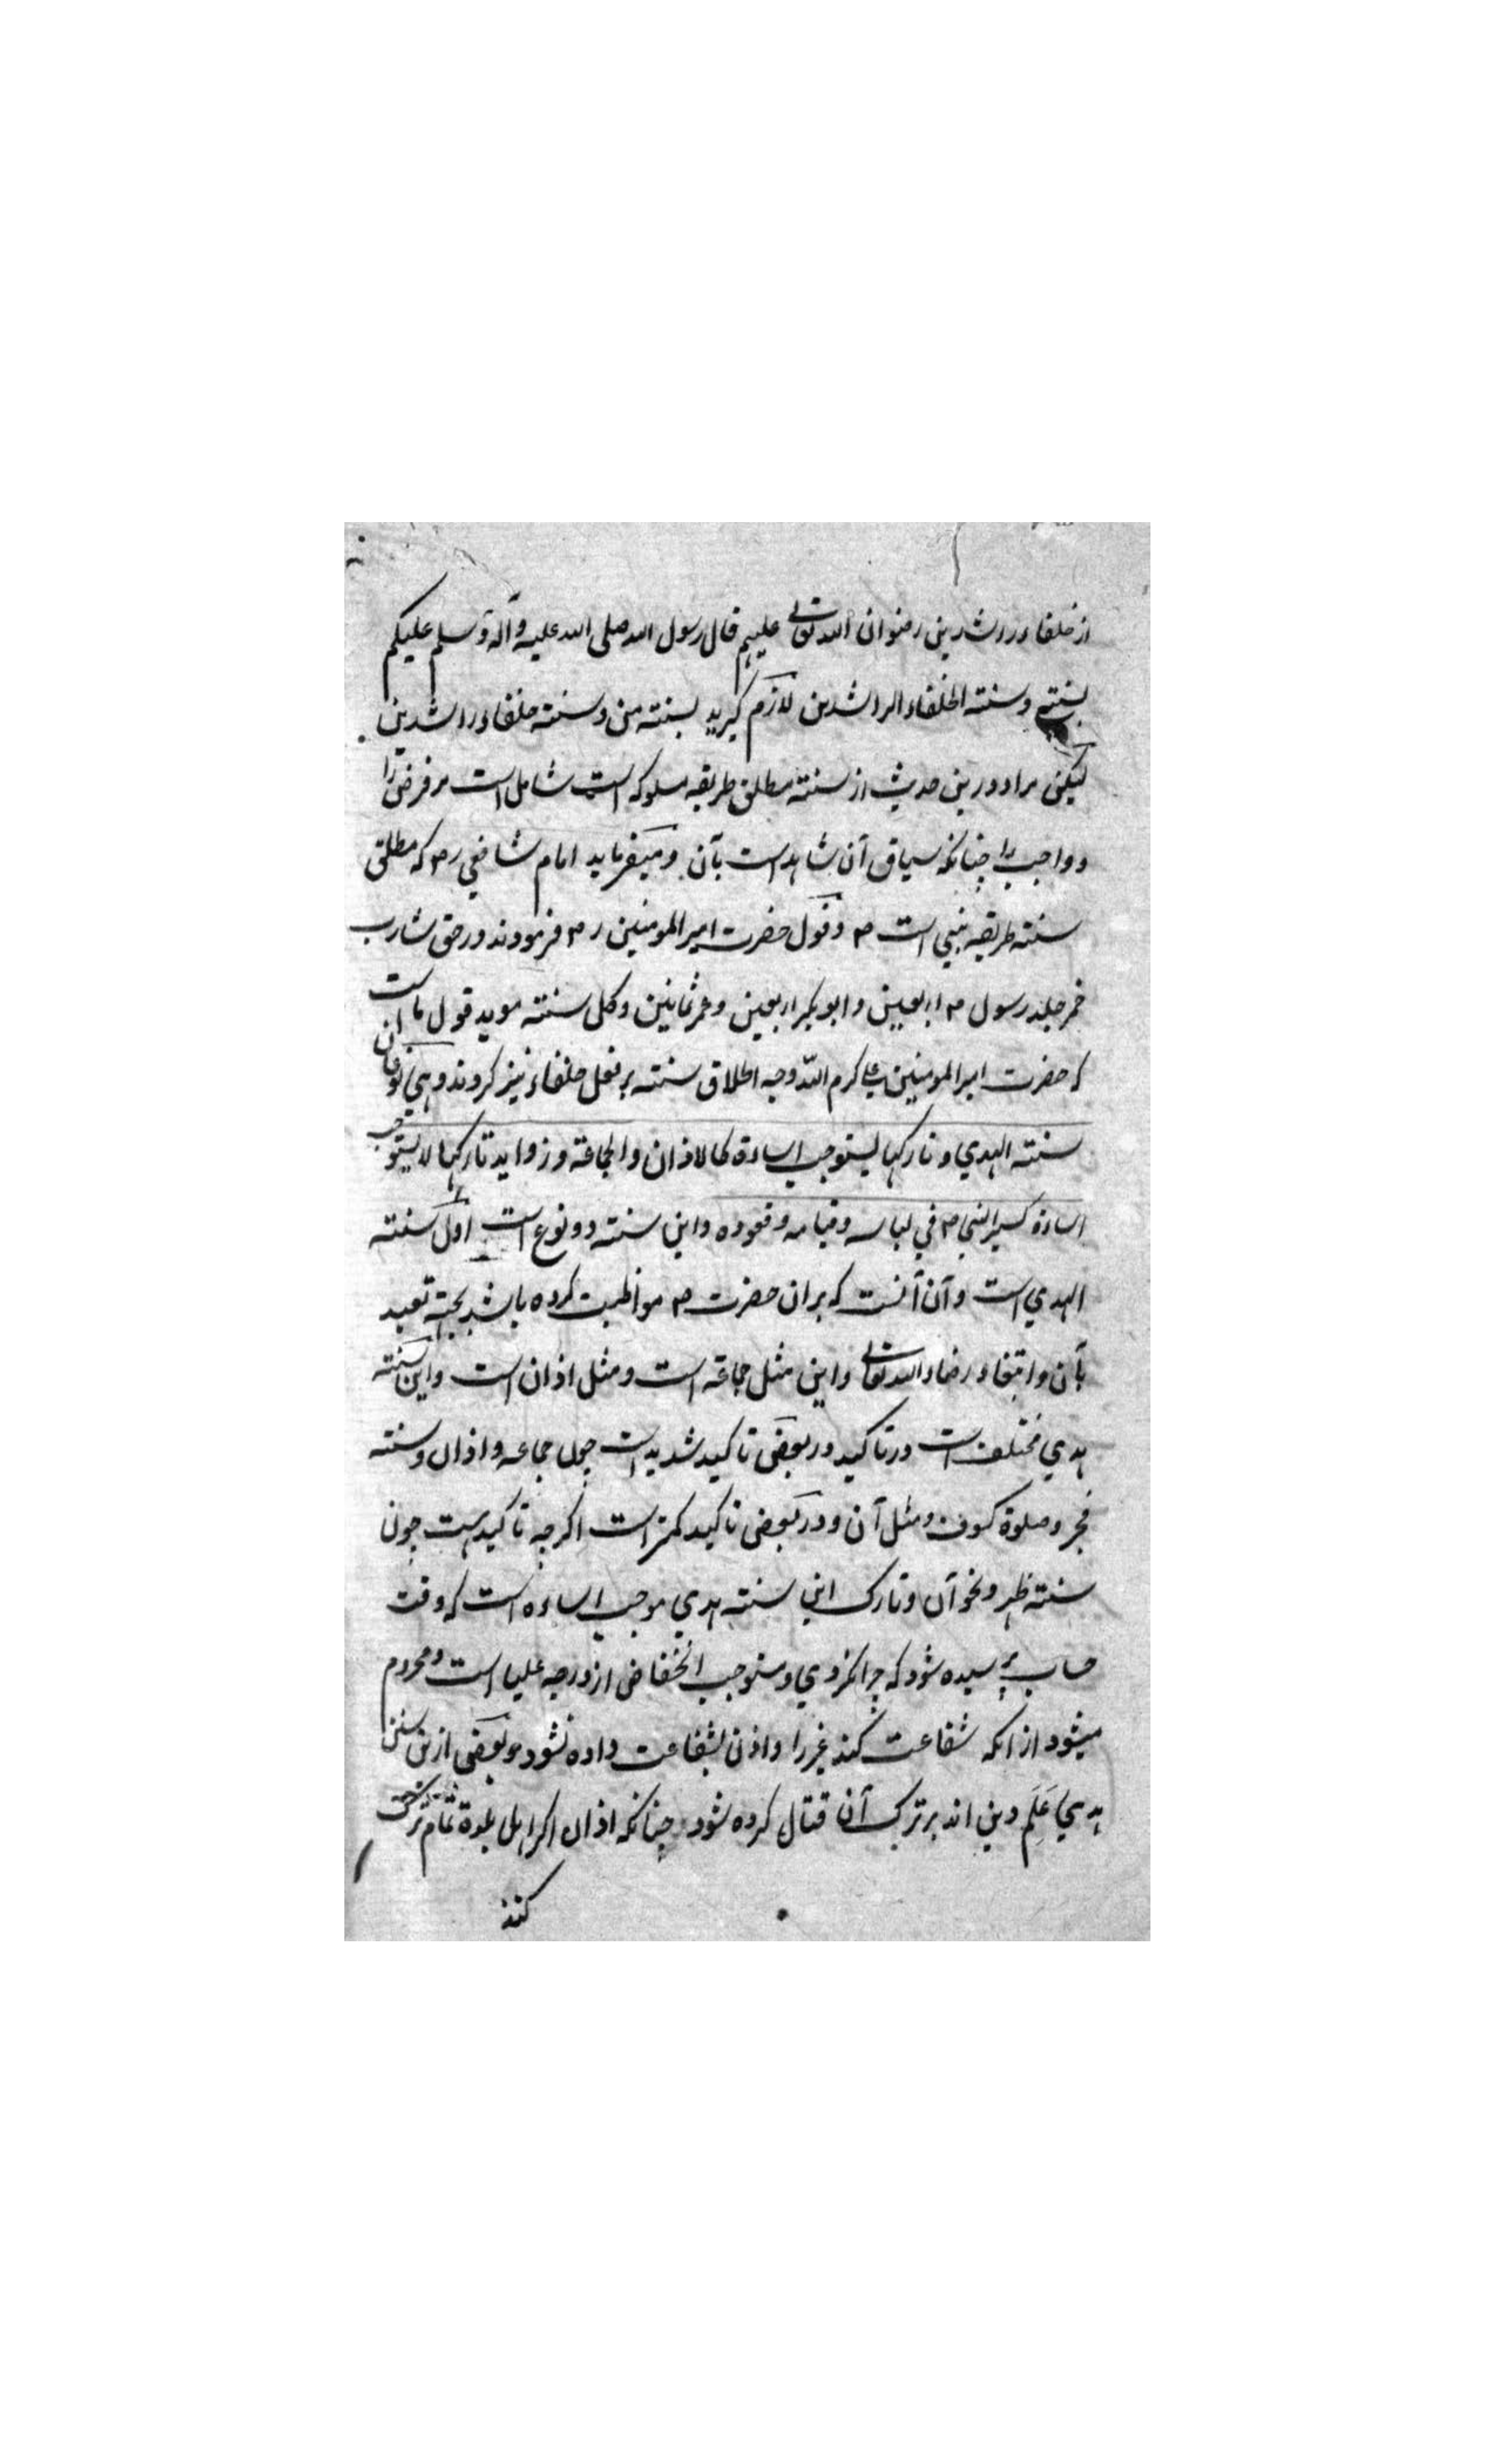 از خلفاء راشدین رضوان الله تعالی علیهم قال رسول الله صلی الله علیه وآله وسلم علیکم
بسنتی وسنته الخلفاء الراشدین لازم گیرید بسنته من وسنته خلفاء راشدین
لیکن مراد درین حدیث از سنته مطلق طریقه مسلوکه است شامل است مر فرض را
و واجب را چنانکه سیاق آن شاهد است بآن ومیفرماید امام شافعی رح که مطلق
سنته طریقه نبی است ص وقول حضرت امیر المومنین رض فرمودند در حق شارب
خمر جلد رسول ص اربعین وابو بکر اربعین وعمر ثمانین وکل سنته موید قول ما است
که حضرت امیر المومنین علی کرم الله وجهه اطلاق سنته بر فعل خلفاء نیز کردند وهی نوعان
سنته الهدي وتارکها یستوجب اساءة کالاذان والجماعة وزواید تارکها لا یستوجب
اساءة کسیر النبي ص في لباسه وقیامه وقعوده واین سنته دو نوع است اول سنته
الهدي است وآن آنست که بران حضرت ص مواظبت کرده باشد بجهة تعبد
بآن وابتغاء رضاء الله تعالی واین مثل جماعة است ومثل اذان است واین سنته
هدي مختلف است در تاکید در بعضی تاکید شدید است چون جماعه واذان وسنته
فجر وصلوة کسوف ومثل آن ودر بعضی تاکید کمتر است اگرچه تاکید هست چون
سنته ظهر ونحو آن وتارک این سنته هدي موجب اساءه است که وقت
حساب پرسیده شود که چرا نکردي ومستوجب انخفاض از درجه علیا است ومحروم
میشود از انکه شفاعت کند غیر را واذن بشفاعت داده نشود وبعضی ازین سنن
هدي عَلَم دین اند بر ترک آن قتال کرده شود چنانکه اذان اگر اهل بلدة تمام ترکش
کنند